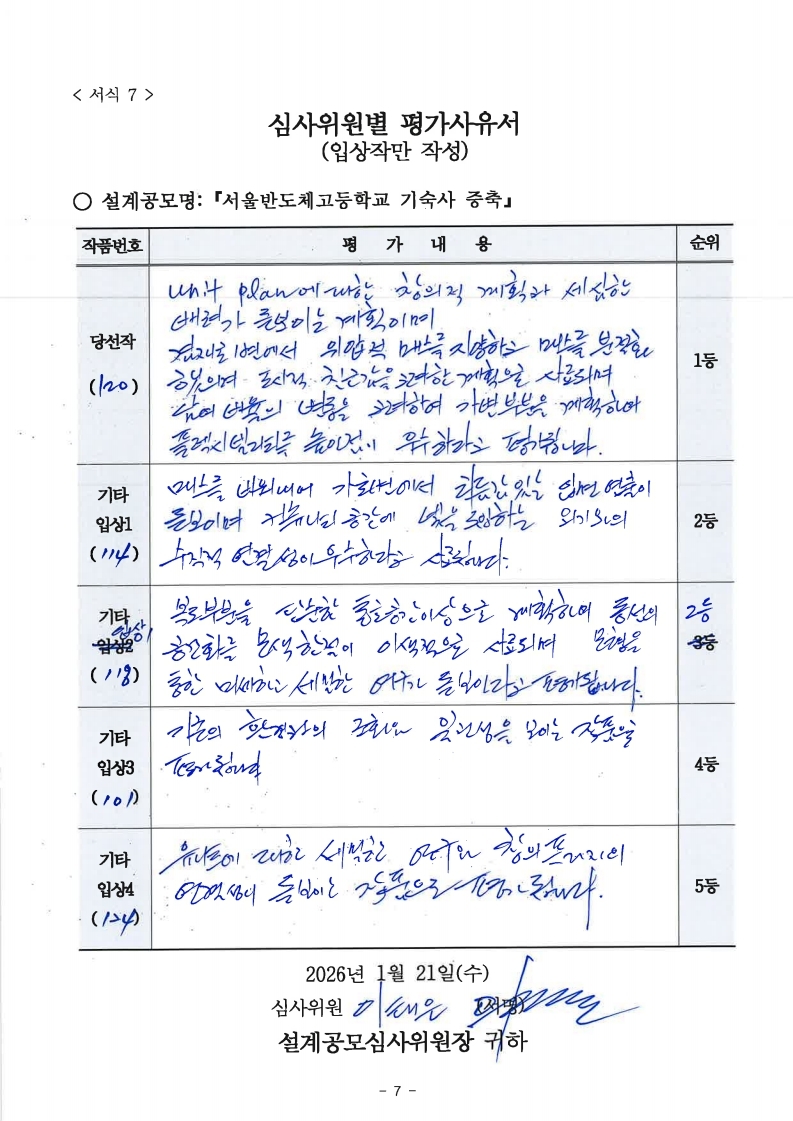 < 서식 7 >
심사위원별 평가사유서
(입상작만 작성)
○ 설계공모명: 『서울반도체고등학교 기숙사 증축』
작품번호 평 가 내 용 순위
당선작
(120)
unit plan에 대한 창의적 계획과 세심한
배려가 돋보이는 계획이며
변에서 위압적 매스를 지양하고 매스를 분절화
하였으며 도시적 친근감을 고려한 계획으로 사료되며
남여 비율의 변동을 고려하여 가변부분을 계획하여
플렉시빌리티를 높인점이 우수하다고 평가됩니다.
1등
기타
입상1
(114)
매스를 비워내어 가로변에서 입면 연출이
돋보이며 커뮤니티 공간에
수직적 연결성이 우수하다고 사료됩니다.
2등
기타
입상2 입상1
(118)
복도부분을 단순한 통로공간이상으로 계획하여 동선의
공간화를 모색한점이 이색적으로 사료되며 모형을
통한 미세하고 세밀한 연구가 돋보인다고 평가됩니다.
2등
3등
기타
입상3
(101)
기존의 환경과의 조화와 일관성을 보이는 작품으로
평가됩니다
4등
기타
입상4
(124)
유니트에 대한 세밀한 연구와
연계성이 돋보이는 작품으로 평가됩니다.
5등
2026년 1월 21일(수)
심사위원 (서명)
설계공모심사위원장 귀하
- 7 -